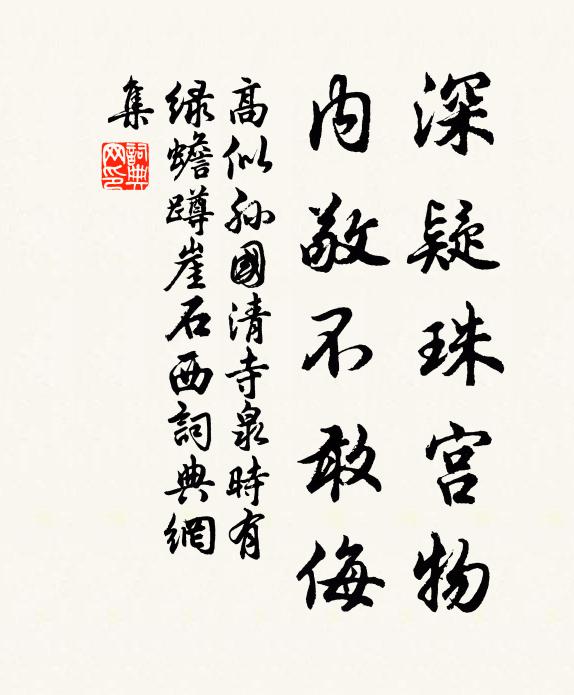 深疑珠宫物
内敬不敢侮
高似孙國清寺泉時有
绿蟾蹲崖石西詞典網
集
詞典网印